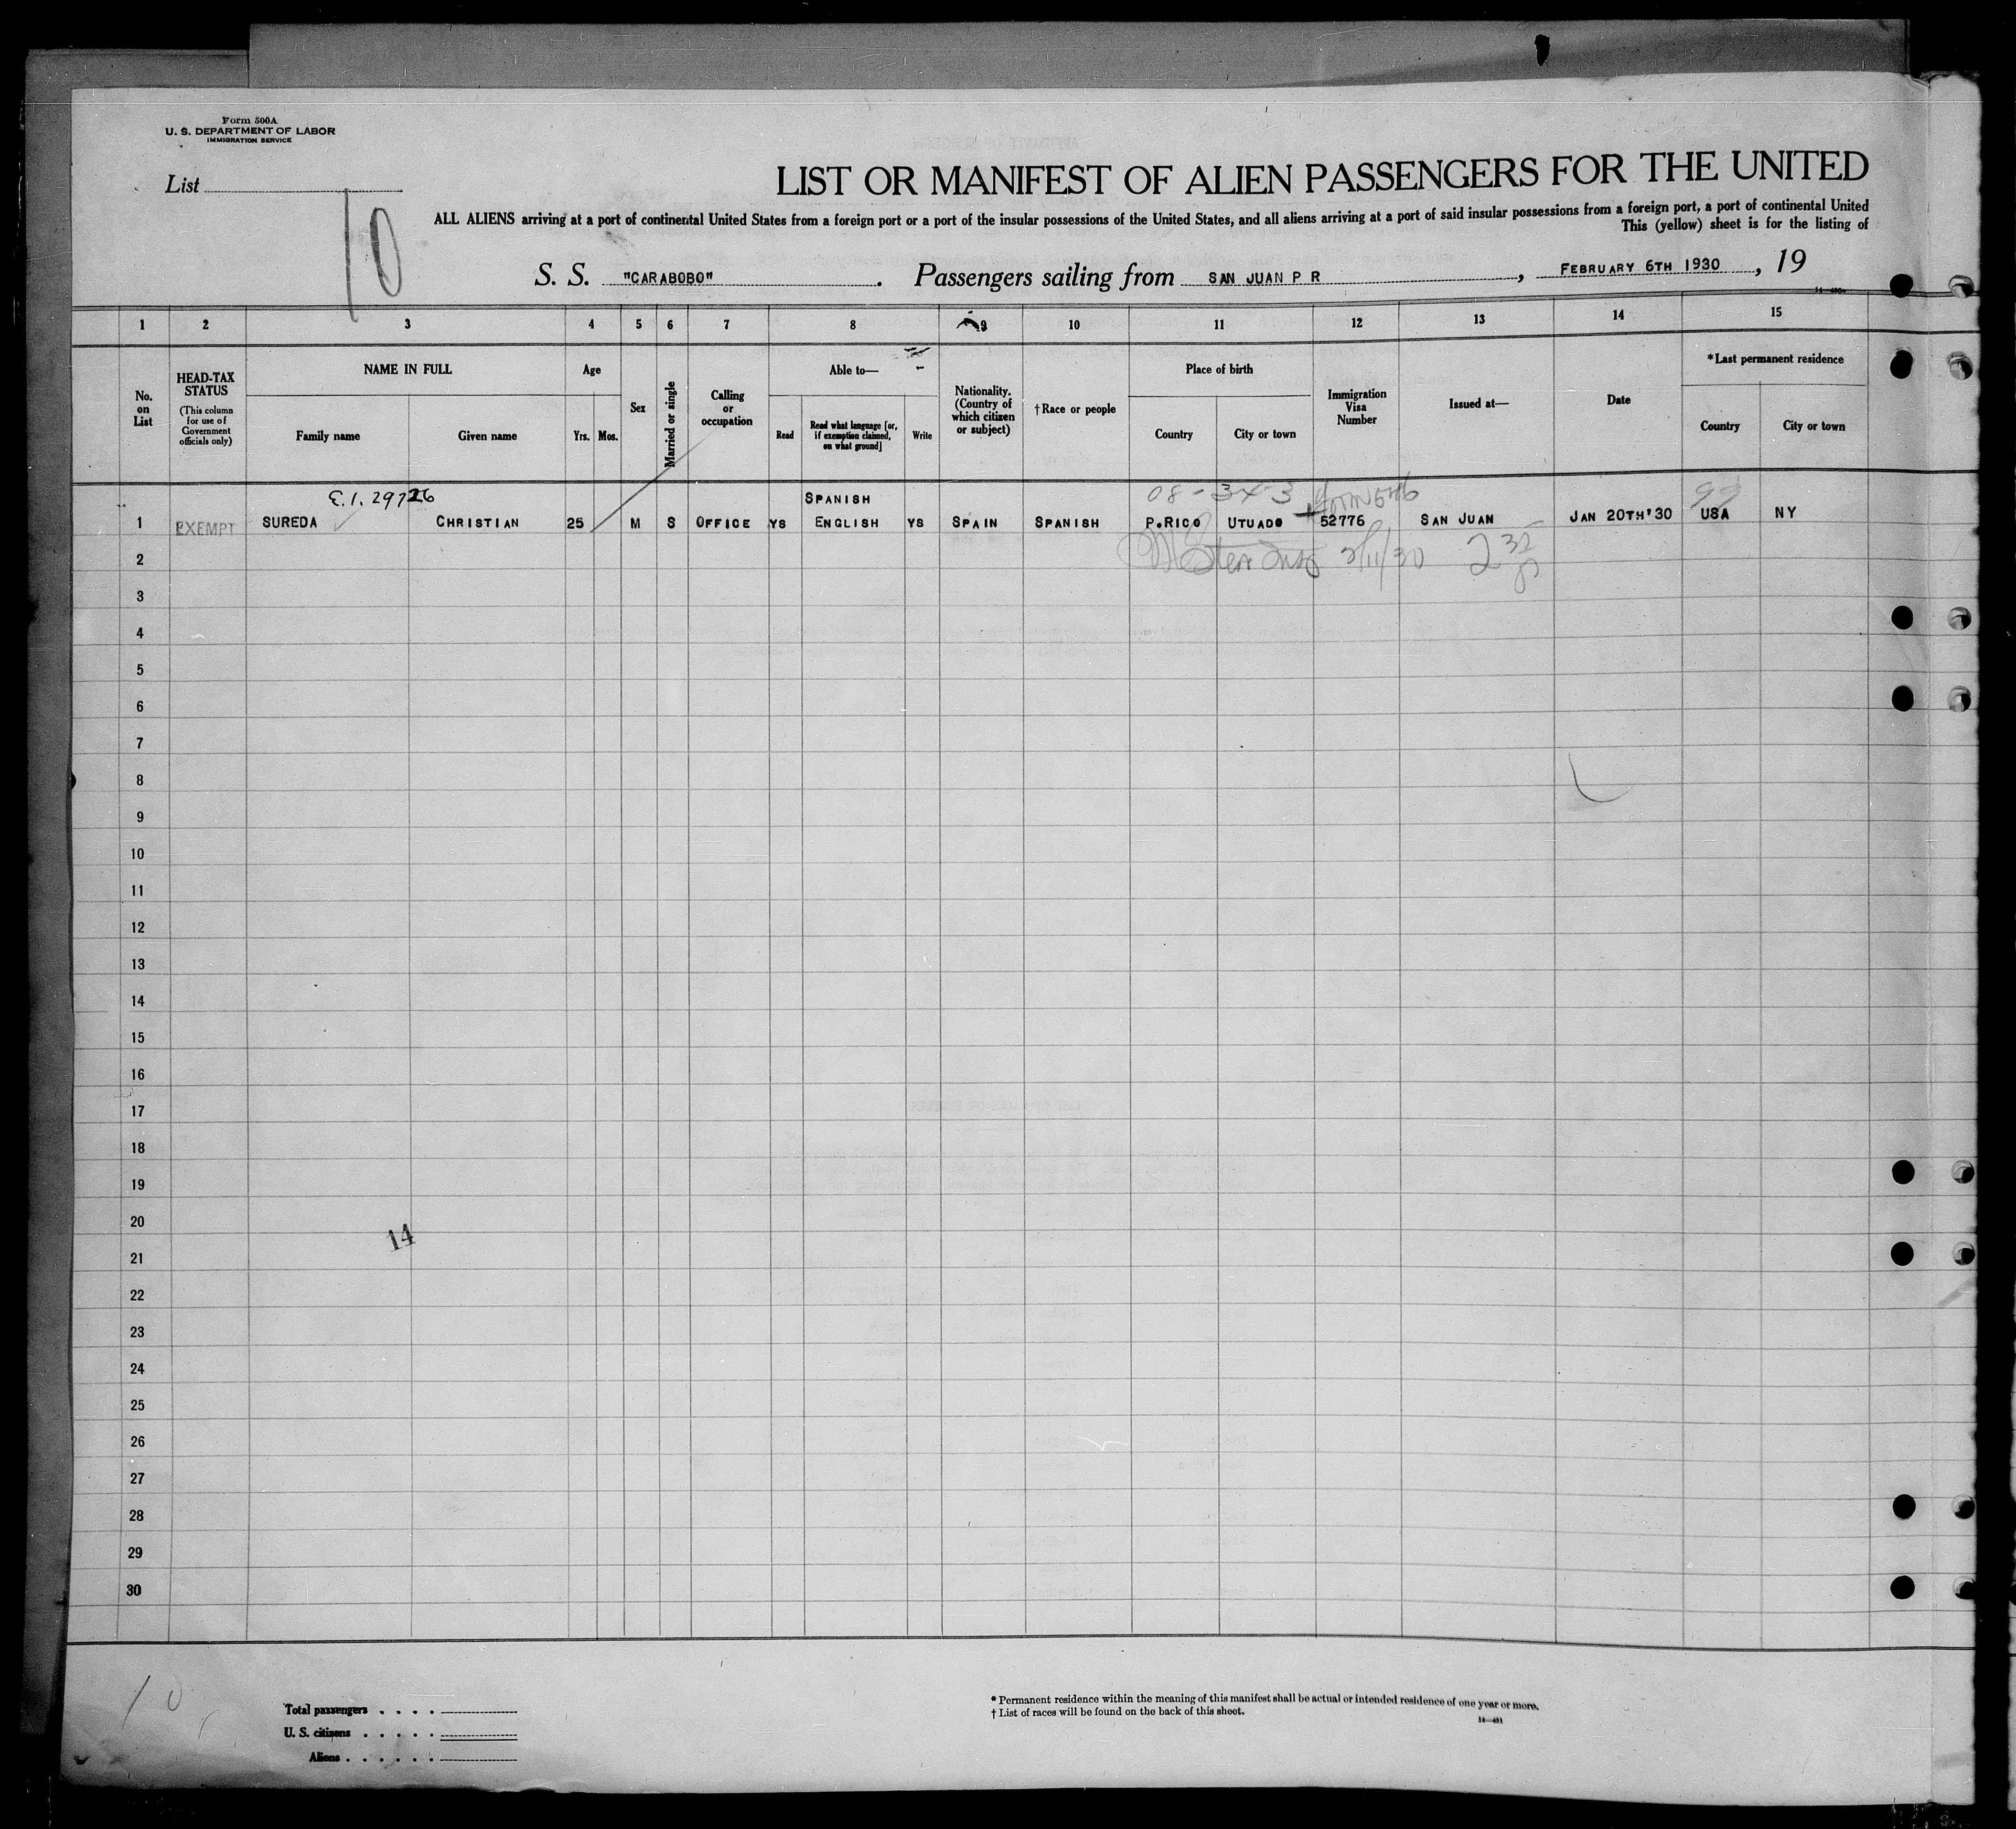 Form 500A
U. S. DEPARTMENT OF LABOR
IMMIGRATION SERVICE
List
10
LIST OR MANIFEST OF ALIEN PASSENGERS FOR THE UNITED
ALL ALIENS arriving at a port of continental United States from a foreign port or a port of the insular possessions of the United States, and all aliens arriving at a port of said insular possessions from a foreign port, a port of continental United
This (yellow) sheet is for the listing of
S. S. "CARABOBO" . Passengers sailing from SAN JUAN P R , FEBRUARY 6TH 1930 , 19
1 2 3 4 5 6 7 8 9 10 11 12 13 14 15
No. on List
HEAD-TAX STATUS
(This column for use of Government officials only)
NAME IN FULL
Family name
Given name
Age
Yrs. Mos.
Sex
Married or single
Calling or occupation
Able to—
Read
Read what language [or, if exemption claimed, on what ground]
Write
Nationality. (Country of which citizen or subject)
†Race or people
Place of birth
Country
City or town
Immigration Visa Number
Issued at—
Date
*Last permanent residence
Country
City or town
E.I. 29726 SPANISH 99
1 EXEMPT SUREDA CHRISTIAN 25 M S OFFICE YS ENGLISH YS SPAIN SPANISH P.RICO UTUADO 52776 SAN JUAN JAN 20TH'30 USA NY
2 2/11/30
3
4
5
6
7
8
9
10
11
12
13
14
15
16
17
18
19
20
14
21
22
23
24
25
26
27
28
29
30
10
Total passengers . . . .
U. S. citizens . . . . .
Aliens . . . . . .
* Permanent residence within the meaning of this manifest shall be actual or intended residence of one year or more.
† List of races will be found on the back of this sheet.